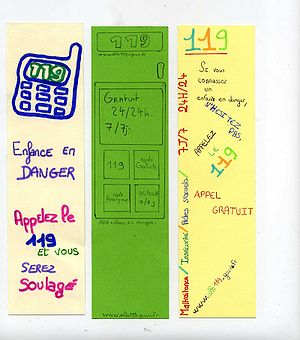 119
Enfance en
DANGER
Appelez le
119
et vous
SEREZ
Soulagé
119
www.allo119.gouv.fr
Gratuit
24/24h.
7/7j.
119
Appel
Gratuit
Appel
Anonyme
24/24h
7/7j
Allô enfance en danger.
www.allo119.gouv.fr
119
Si vous
connaissez
un
enfant en danger,
N'HÉSITEZ
PAS,
APPELEZ
LE
119
APPEL
GRATUIT
www.allo119.gouv.fr
Maltraitance / Insécurité / 7J/7 24H/24